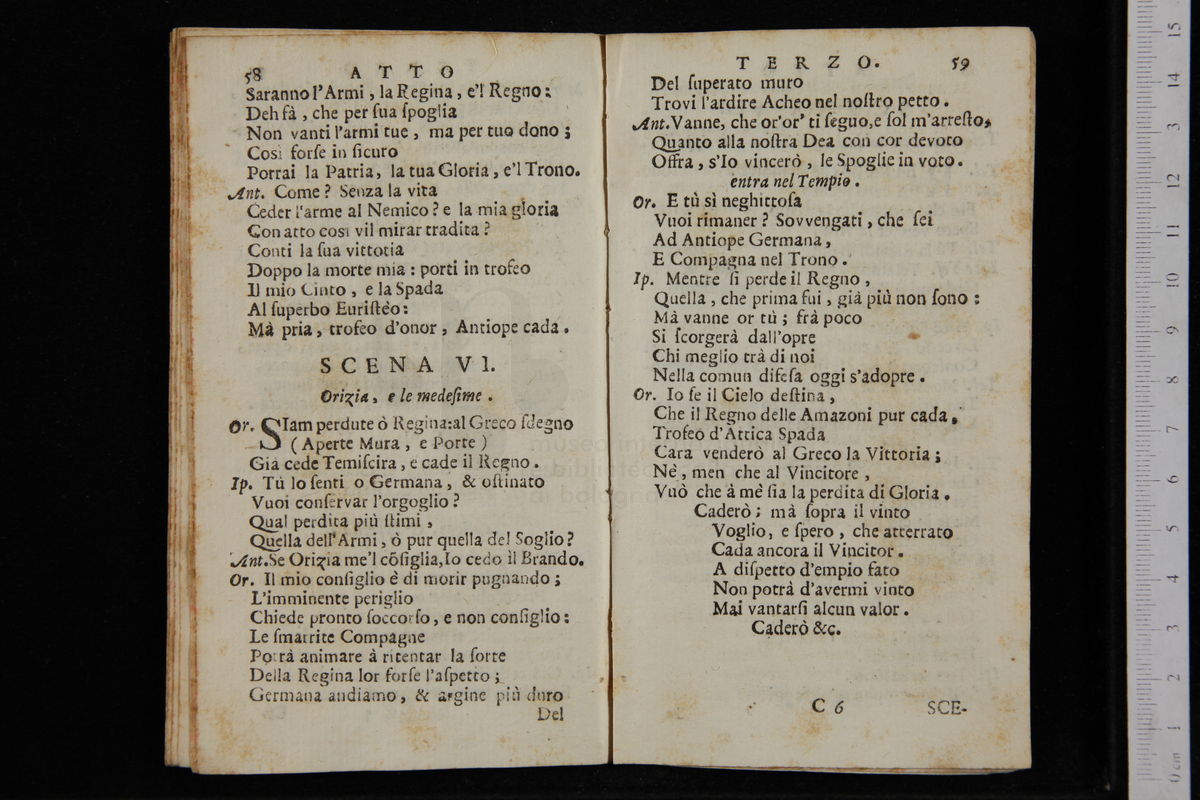 58 ATTO
Saranno l'Armi, la Regina, e'l Regno:
Deh fà, che per ſua ſpoglia
Non vanti l'armi tue, ma per tuo dono;
Così forſe in ſicuro
Porrai la Patria, la tua Gloria, e'l Trono.
Ant. Come? Senza la vita
Ceder l'arme al Nemico? e la mia gloria
Con atto così vil mirar tradita?
Conti la ſua vittoria
Doppo la morte mia: porti in trofeo
Il mio Cinto, e la Spada
Al ſuperbo Euriſtèo:
Mà pria, trofeo d'onor, Antiope cada.
SCENA VI.
Orizia, e le medeſime.
Or. SIam perdute ò Regina: al Greco ſdegno
(Aperte Mura, e Porte)
Già cede Temiſcira, e cade il Regno.
Ip. Tù lo ſenti o Germana, & oſtinato
Vuoi conſervar l'orgoglio?
Qual perdita più ſtimi,
Quella dell'Armi, ò pur quella del Soglio?
Ant. Se Orizia me'l cõſiglia, Io cedo il Brando.
Or. Il mio conſiglio è di morir pugnando;
L'imminente periglio
Chiede pronto ſoccorſo, e non conſiglio:
Le ſmarrite Compagne
Potrà animare à ritentar la ſorte
Della Regina lor forſe l'aſpetto;
Germana andiamo, & argine più duro
Del
TERZO. 59
Del ſuperato muro
Trovi l'ardire Acheo nel noſtro petto.
Ant. Vanne, che or'or' ti ſeguo, e ſol m'arreſto,
Quanto alla noſtra Dea con cor devoto
Offra, s'Io vincerò, le Spoglie in voto.
entra nel Tempio.
Or. E tù sì neghittoſa
Vuoi rimaner? Sovvengati, che ſei
Ad Antiope Germana,
E Compagna nel Trono.
Ip. Mentre ſi perde il Regno,
Quella, che prima fui, già più non ſono:
Mà vanne or tù; frà poco
Si ſcorgerà dall'opre
Chi meglio trà di noi
Nella comun difeſa oggi s'adopre.
Or. Io ſe il Cielo deſtina,
Che il Regno delle Amazoni pur cada,
Trofeo d'Attica Spada
Cara venderò al Greco la Vittoria;
Nè, men che al Vincitore,
Vuò che à mè ſia la perdita di Gloria.
Caderò; mà ſopra il vinto
Voglio, e ſpero, che atterrato
Cada ancora il Vincitor.
A diſpetto d'empio fato
Non potrà d'avermi vinto
Mai vantarſi alcun valor.
Caderò &c.
C 6 SCE-